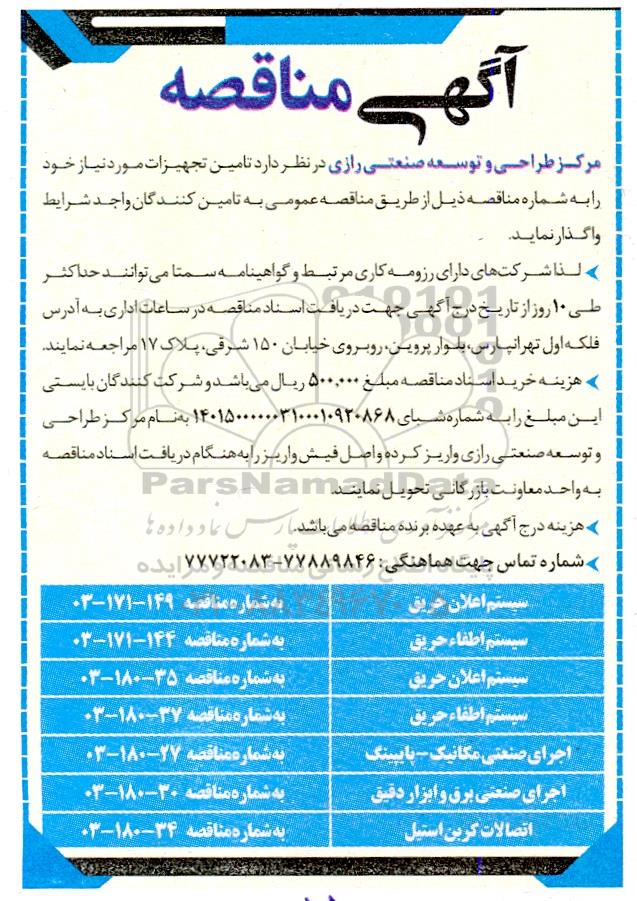 آگهی مناقصه
مرکز طراحی و توسعه صنعتی رازی در نظر دارد تامین تجهیزات مورد نیاز خود
را به شماره مناقصه ذیل از طریق مناقصه عمومی به تامین کنندگان واجد شرایط
واگذار نماید.
لذا شرکت‌های دارای رزومه کاری مرتبط و گواهینامه سمتا می‌توانند حداکثر
طی ۱۰ روز از تاریخ درج آگهی جهت دریافت اسناد مناقصه در ساعات اداری به آدرس
فلکه اول تهرانپارس، بلوار پروین، روبروی خیابان ۱۵۰ شرقی، پلاک ۱۷ مراجعه نمایند.
هزینه خرید اسناد مناقصه مبلغ ۵۰۰,۰۰۰ ریال می‌باشد و شرکت کنندگان بایستی
این مبلغ را به شماره شبای ۱۴۰۱۵۰۰۰۰۰۰۳۱۰۰۰۱۰۹۲۰۸۶۸ به نام مرکز طراحی
و توسعه صنعتی رازی واریز کرده و اصل فیش واریز را به هنگام دریافت اسناد مناقصه
به واحد معاونت بازرگانی تحویل نمایند.
ParsNamadData
هزینه درج آگهی به عهده برنده مناقصه می‌باشد.
شماره تماس جهت هماهنگی: ۷۷۸۸۹۸۴۶-۷۷۷۲۲۰۸۳
سیستم اعلان حریق به شماره مناقصه ۱۴۹-۱۷۱-۰۳
سیستم اطفاء حریق به شماره مناقصه ۱۴۴-۱۷۱-۰۳
سیستم اعلان حریق به شماره مناقصه ۳۵-۱۸۰-۰۳
سیستم اطفاء حریق به شماره مناقصه ۳۷-۱۸۰-۰۳
اجرای صنعتی مکانیک-پایپینگ به شماره مناقصه ۲۷-۱۸۰-۰۳
اجرای صنعتی برق و ابزار دقیق به شماره مناقصه ۳۰-۱۸۰-۰۳
اتصالات کربن استیل به شماره مناقصه ۳۴-۱۸۰-۰۳